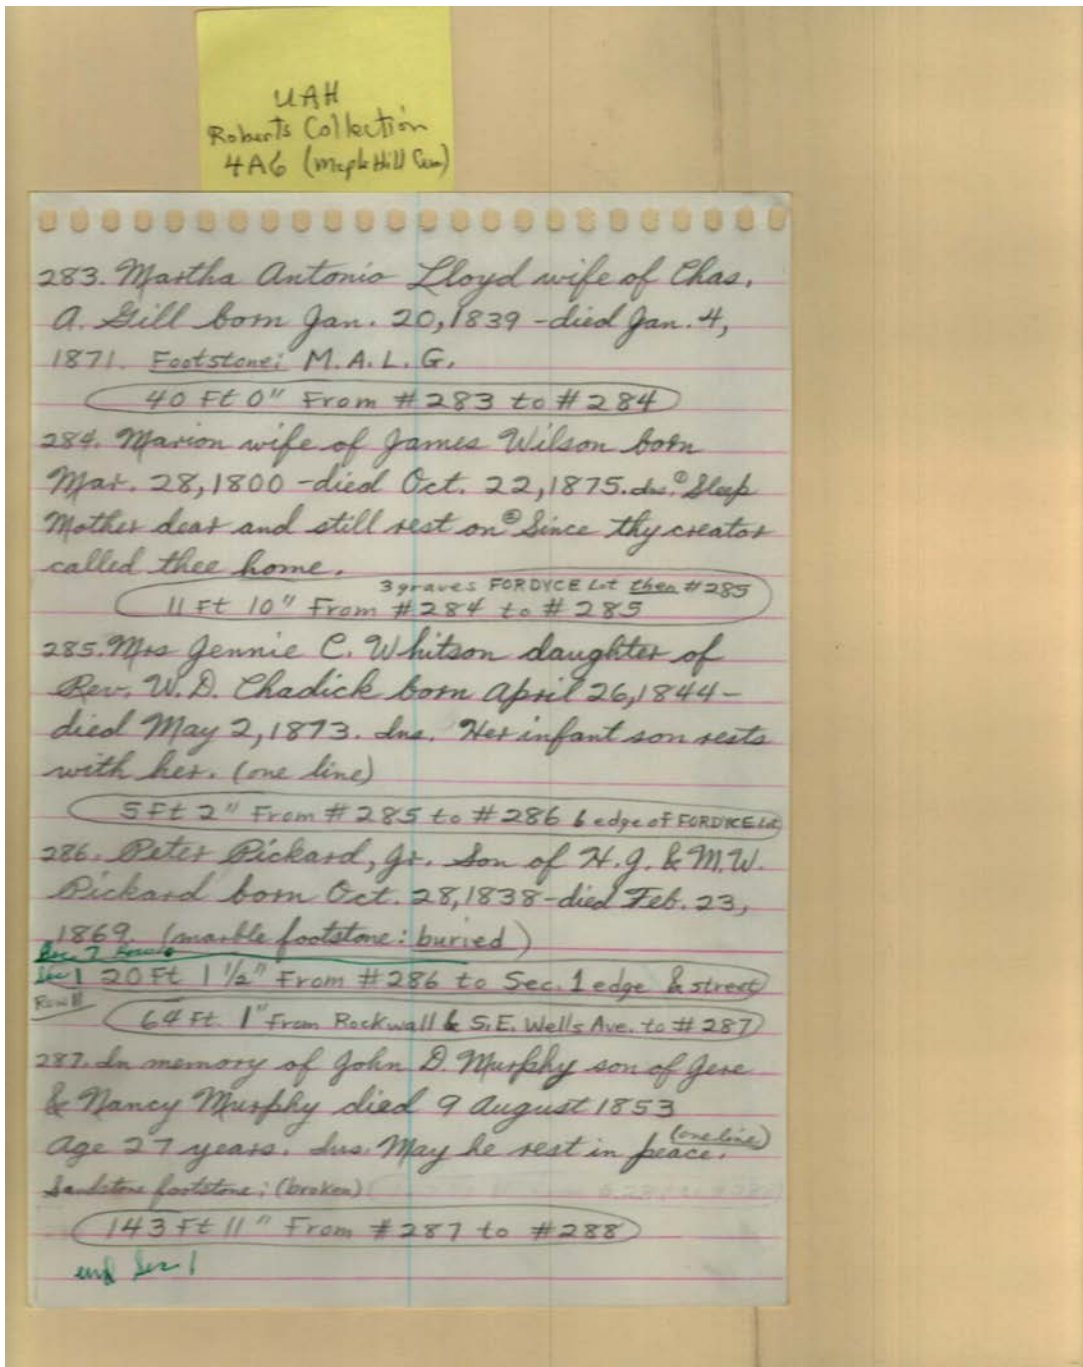 UAH
Roberts Collection
4A6 (Maple Hill Cem)
283. Martha Antonio Lloyd wife of Chas.
A. Gill born Jan. 20, 1839 - died Jan. 4,
1871. Footstone: M.A.L.G.
40 Ft 0" From #283 to #284
284. Marion wife of James Wilson born
Mar. 28, 1800 - died Oct. 22, 1875. Ins. ① Sleep
Mother dear and still rest on ② Since thy creator
called thee home.
3 graves FORDYCE Lot then #285
11 Ft 10" From #284 to #285
285. Mrs Jennie C. Whitson daughter of
Rev. W.D. Chadick born April 26, 1844 -
died May 2, 1873. Ins. Her infant son rests
with her. (one line)
5 Ft 2" From #285 to #286 & edge of FORDYCE Lot
286. Peter Pickard, Jr. Son of H.J. & M.W.
Pickard born Oct. 28, 1838 - died Feb. 23,
1869. (marble footstone: buried)
Sec 1 20 Ft 1 1/2" From #286 to Sec. 1 edge & street
Row 11
64 Ft. 1" From Rockwall & S.E. Wells Ave. to #287
287. In memory of John D. Murphy son of Jere
& Nancy Murphy died 9 August 1853
Age 27 years. Ins. May he rest in peace. (one line)
Sandstone footstone: (broken)
143 Ft 11" From #287 to #288
end Sec 1